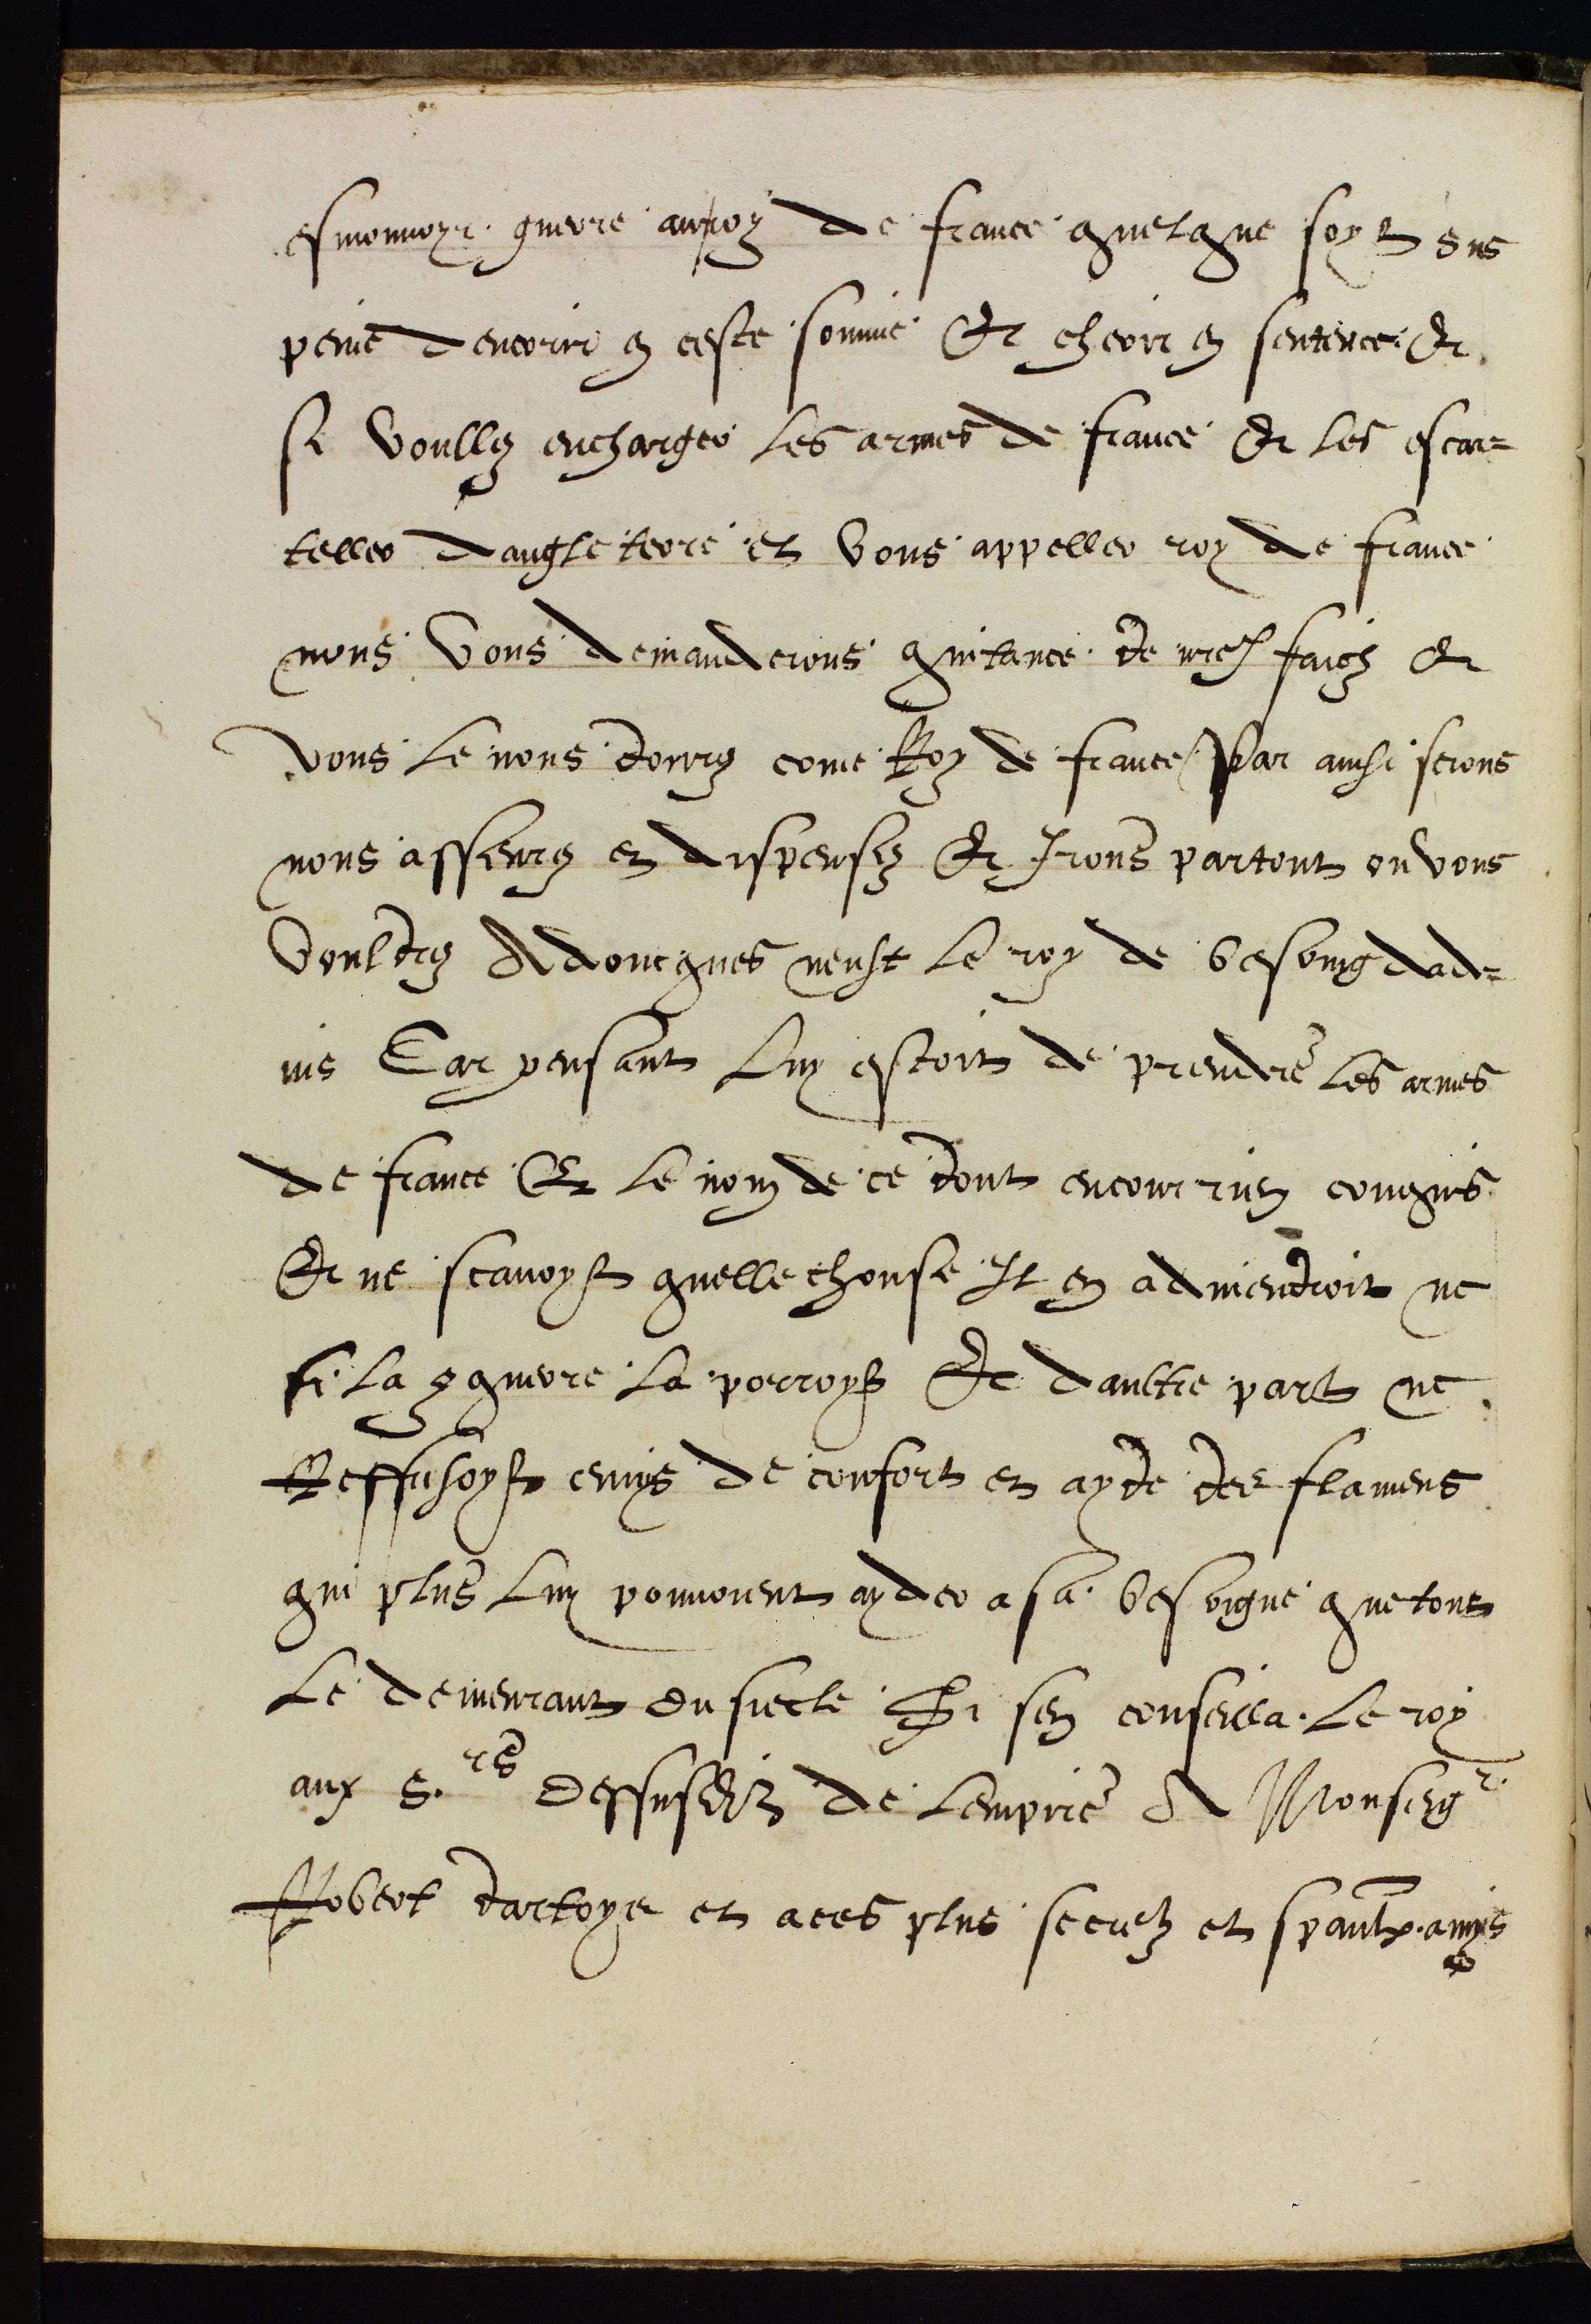 esmouvoyr guerre au roy de france quelque soyt sus
peine dencorir en ceste somme Et cheoir en sentence Et
si voullez encharger les armes de france Et les escar-
teller dangleterre et vous appeller roy de france
nous vous demanderons quitance de nres faicz Et
vous le nous donrrez come Roy de france Par ainsi serons
nous asseurez et dispensez Et Irons partout ou vous
vouldrez Adoncques neust le roy de besoing dad-
vis Car pensant luy estoit de prendre les armes
de france Et le nom de ce dont encour rien conquis
Et ne scavoyt quelle chouse Il en adviendroit ne
si la guerre la porroyt Et daultre part ne
Reffusoyt envys de confort et ayde des flamens
qui plus luy pouvoient ayder a sa besoigne que tout
le demeurant du siecle Si sen conseilla le roy
aux S.rs dessusdiz de lempire A Monseigr
Robert dartoys et a ces plus secretz et spaulx amys